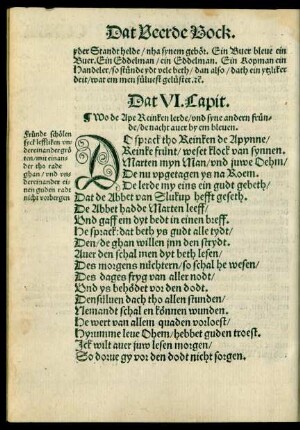 Dat Veerde Bock.
yder Standt helde / nha synem gebör. Ein Buer bleue ein
Buer. Ein Eddelman / ein Eddelman. Ein Kopman ein
Handeler / so stünde ydt vele beth / dan also / dath ein ytzliker
deit / wat em men süluest gelüstet. ꝛc.
Dat VI. Capit.
¶ Wo de Ape Reinken lerde / vnd syne andern frün-
de / de nacht auer by em bleuen.
Fründe schölen
sick leffliken vn-
dereinander grö-
ten / mit einan-
der tho rade
ghan / vnd vn-
dereinander ei-
nen guden radt
nicht vorbergen
DO sprack tho Reinken de Apynne /
Reinke fründt / weset klock van synnen.
Marten myn Man / vnd juwe Oehm /
De nu vpgetagen ys na Roem.
De lerde my eins ein gudt gebeth /
Dat de Abbet van Slukup hefft gesett
De Abbet hadde Marten leeff /
Vnd gaff em dyt bedt in einen breff.
He sprack: dat beth ys gudt alle tydt /
Den / de ghan willen jnn den strydt.
Auer den schal men dyt beth lesen /
Des morgens nüchtern / so schal he wesen /
Des dages fryg van aller nodt /
Vnd ys behödet vor den dodt.
Densüluen dach tho allen stunden /
Nemandt schal en können wunden.
He wert van allem quaden vorloest /
Hyrumme leue Ohem / hebbet guden troest.
Jck wilt auer juw lesen morgen /
So dorue gy vor den dodt nicht sorgen.